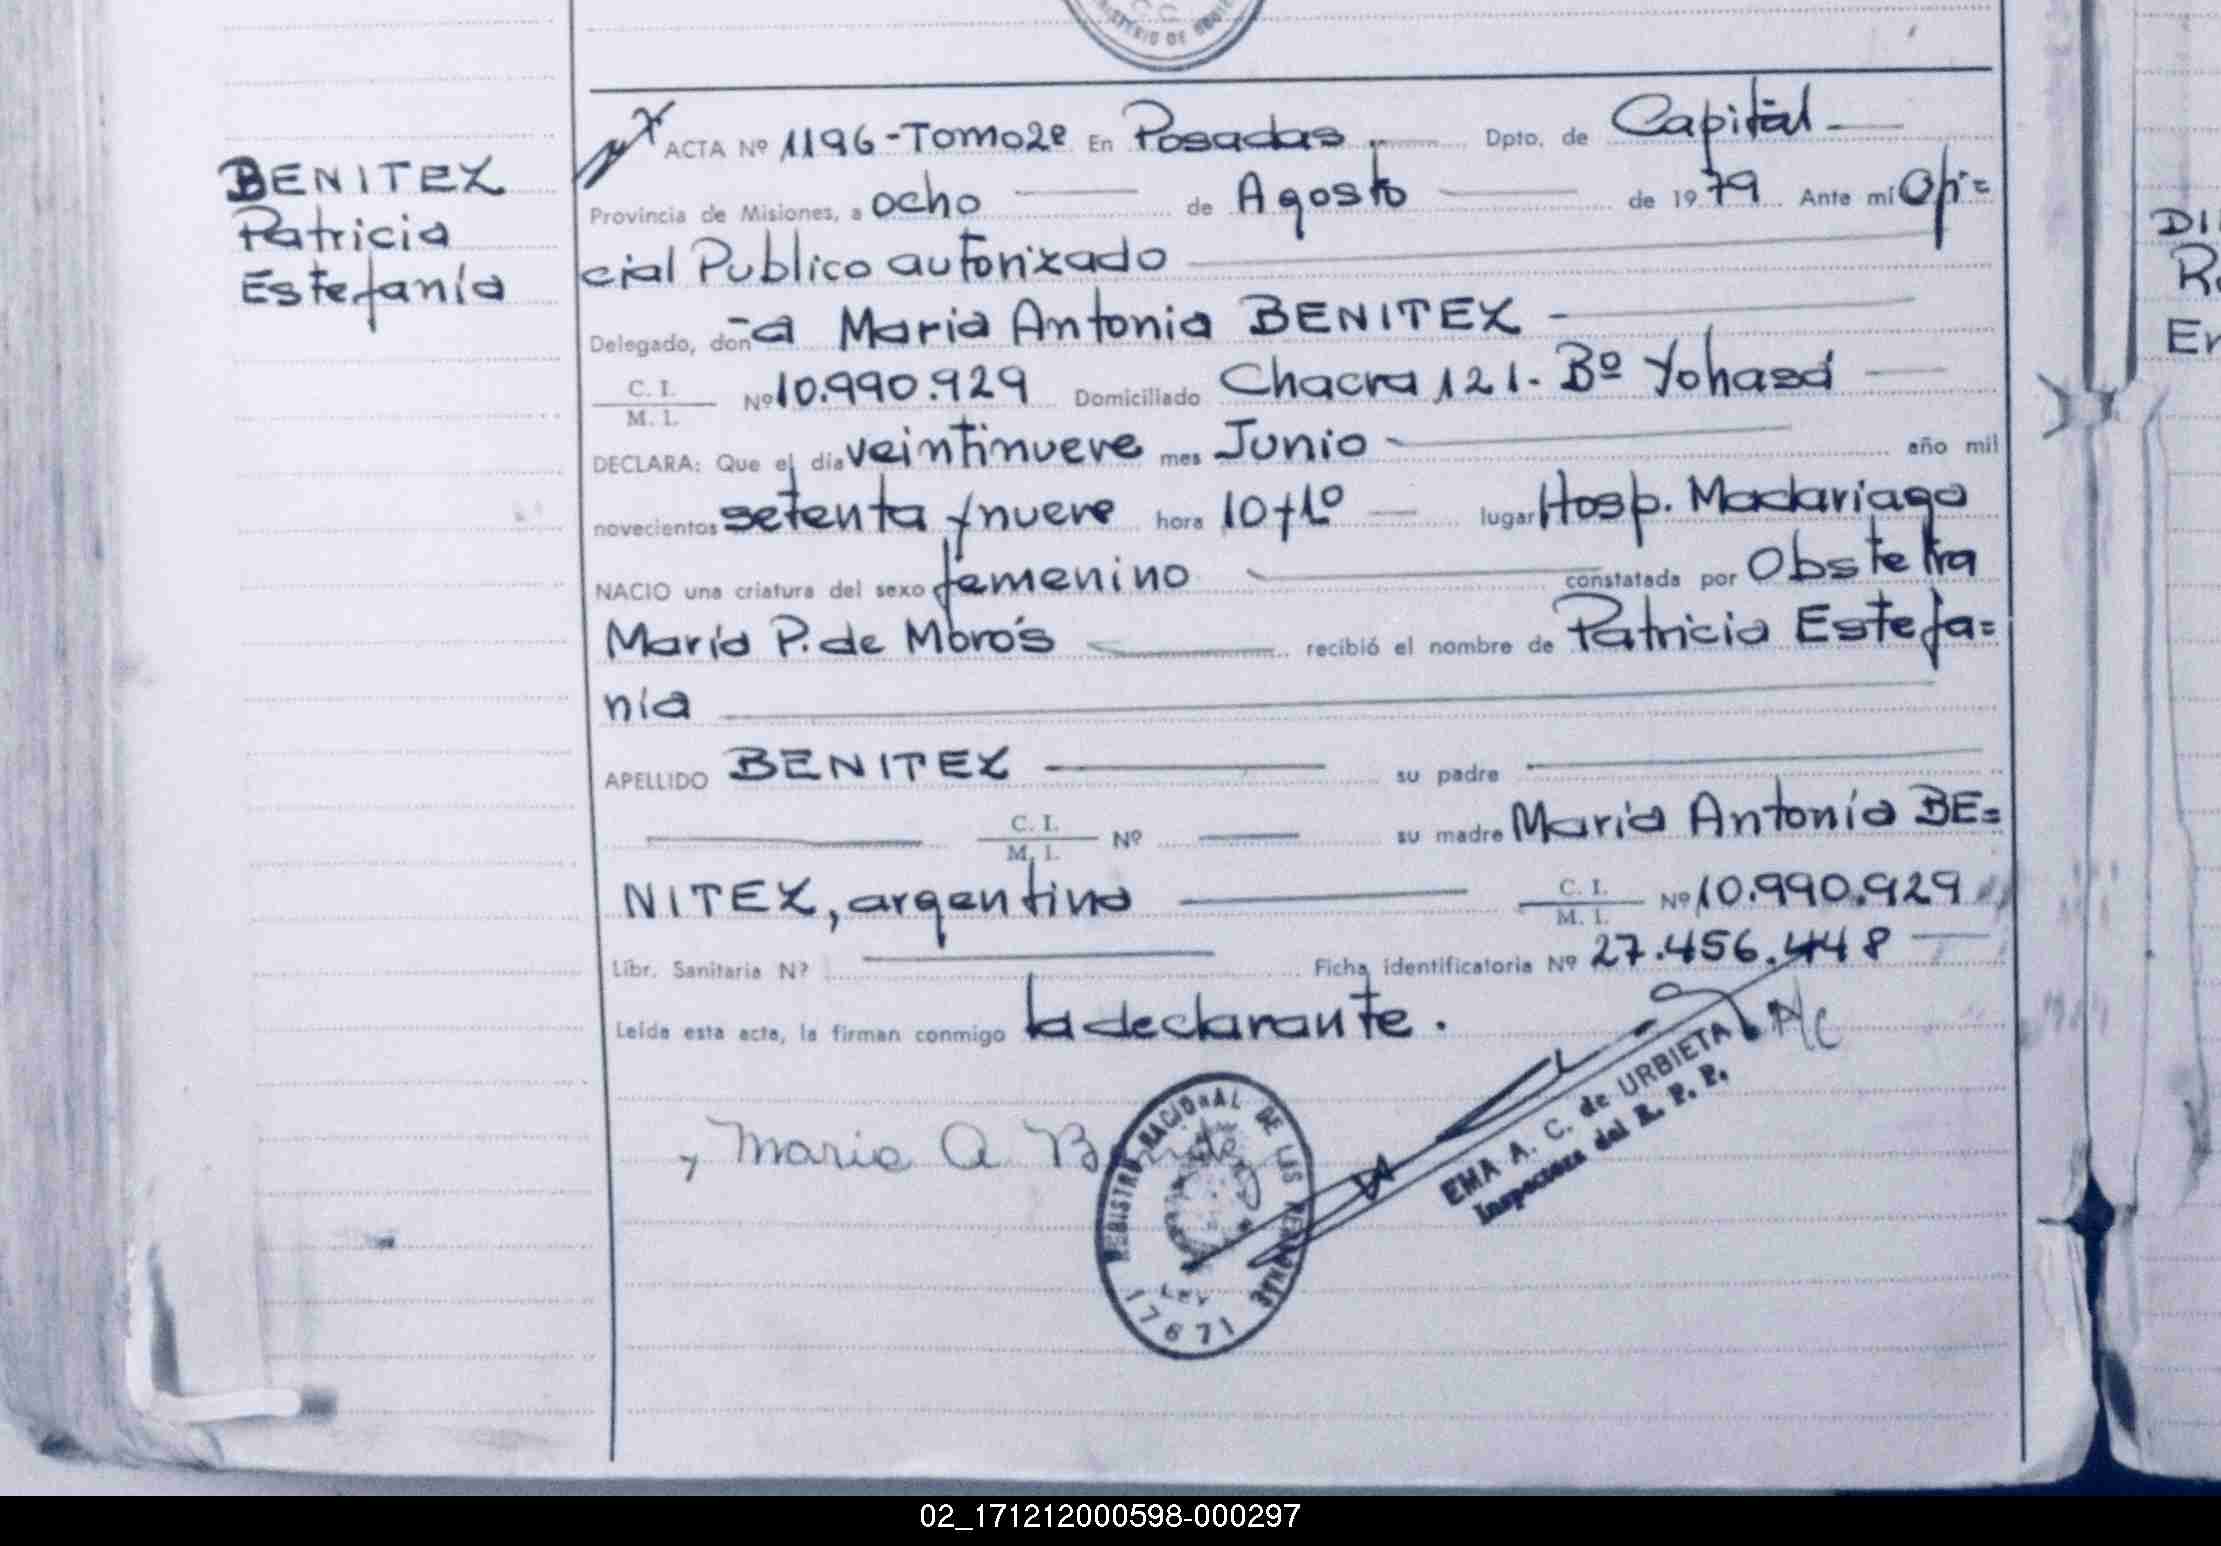 MINISTERIO DE GOBIE
ACTA Nº 1196-Tomo2º En Posadas Dpto. de Capital
Provincia de Misiones, a ocho de Agosto de 1979 Ante mí Ofi=
cial Publico autorizado
Delegado, doña Maria Antonia BENITEZ
C. I. / M. I. Nº 10.990.929 Domiciliado Chacra 121. Bº Yohasá
DECLARA: Que el día veintinueve mes Junio año mil
novecientos setenta y nueve hora 10 lugar Hosp. Madariaga
NACIO una criatura del sexo femenino constatada por Obstetra
María P. de recibió el nombre de Patricia Estefa=
nía
APELLIDO BENITEZ su padre
C. I. / M. I. Nº su madre Maria Antonia BE=
NITEZ, argentina C. I. / M. I. Nº 10.990.929
Libr. Sanitaria Nº Ficha identificatoria Nº 27.456.448
Leída esta acta, la firman conmigo la declarante.
A/C
Maria A Benitez
REGISTRO NACIONAL DE LAS PERSONAS
LEY
17671
EMA A. C. de URBIETA
Inspectora del R. P. P.
BENITEZ
Patricia
Estefanía
DI
R
En
02_171212000598-000297